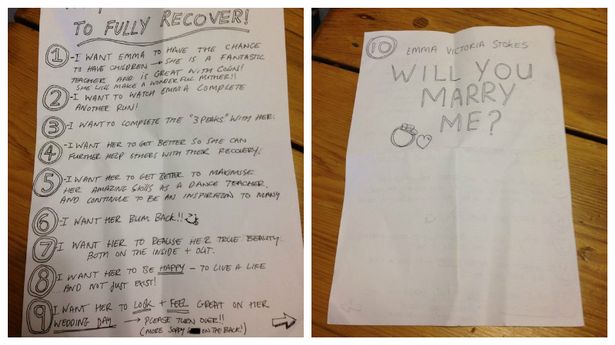 TO FULLY RECOVER!
1 - I WANT EMMA TO HAVE THE CHANCE
TO HAVE CHILDREN → SHE IS A FANTASTIC
TEACHER AND IS GREAT WITH COLIN!
SHE WILL MAKE A WONDERFUL MOTHER!!
2 - I WANT TO WATCH EMMA COMPLETE
ANOTHER RUN!
3 - I WANT TO COMPLETE THE "3 PEAKS" WITH HER.
4 - I WANT HER TO GET BETTER SO SHE CAN
FURTHER HELP OTHERS WITH THEIR RECOVERY.
5 - I WANT HER TO GET BETTER TO MAXIMISE
HER AMAZING SKILLS AS A DANCE TEACHER
AND CONTINUE TO BE AN INSPIRATION TO MANY
6 - I WANT HER BUM BACK!!
7 I WANT HER TO REALISE HER TRUE BEAUTY
BOTH ON THE INSIDE + OUT.
8 I WANT HER TO BE HAPPY - TO LIVE A LIFE
AND NOT JUST EXIST!
9 I WANT HER TO LOOK + FEEL GREAT ON HER
WEDDING DAY → PLEASE TURN OVER!!
(MORE SOPPY ON THE BACK!)
10 EMMA VICTORIA STOKES
WILL YOU
MARRY
ME?